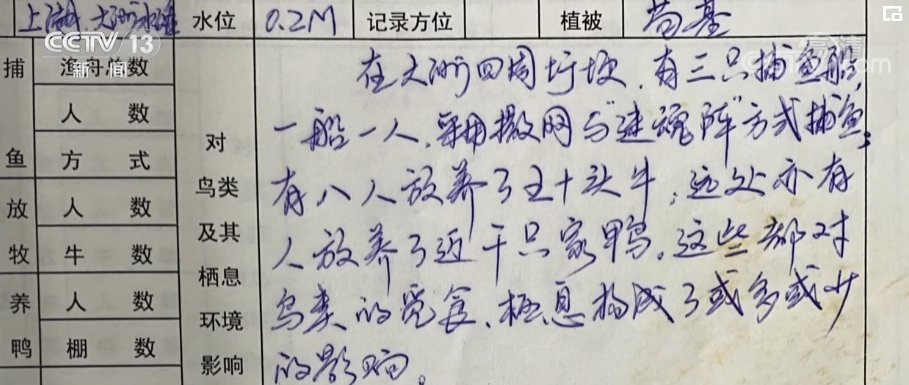 上湖 大洲水滩 水位 0.2M 记录方位 植被 苔基
CCTV 13
新闻
高清
.com
捕鱼 渔舟总数
人数
方式
放牧 人数
牛数
养鸭 人数
棚数
对鸟类及其栖息环境影响
在大洲四周圩埂，有三只捕鱼船
一船一人，采用撒网与“迷魂阵”方式捕鱼；
有八人放养了五十头牛；远处亦有
人放养了近千只家鸭。这些都对
鸟类的觅食、栖息构成了或多或少
的影响。